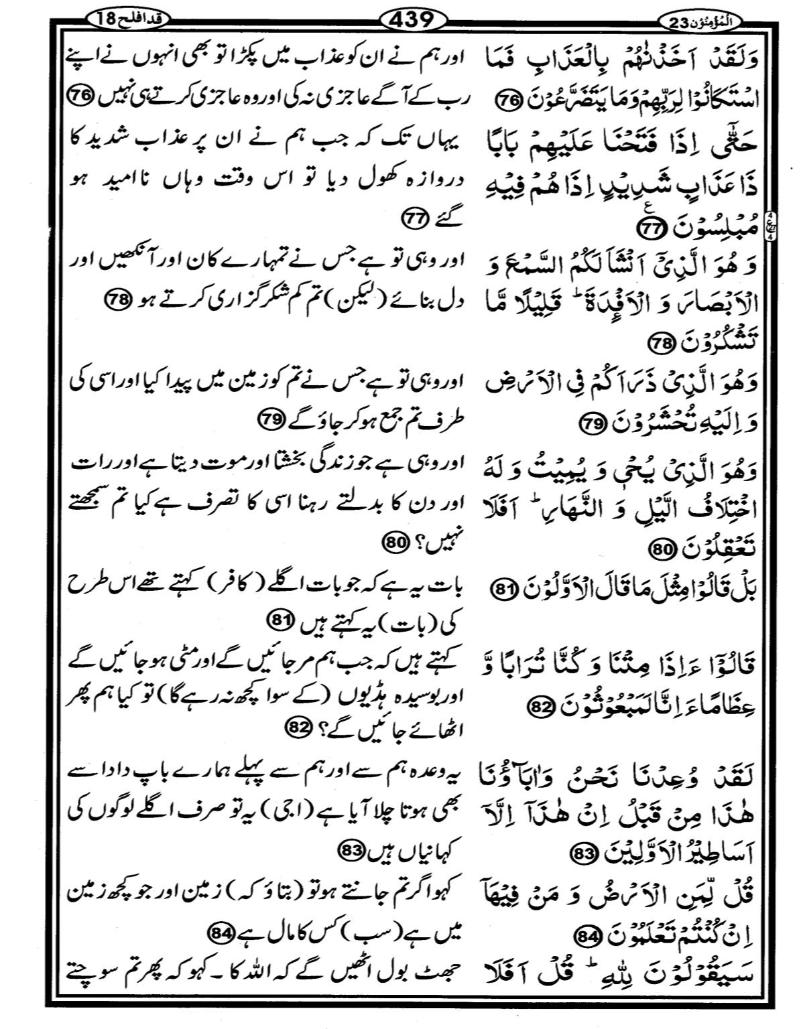 المؤمنون 23
439
قد افلح 18
وَلَقَدۡ اَخَذۡنٰهُمۡ بِالۡعَذَابِ فَمَا
اسۡتَكَانُوۡا لِرَبِّهِمۡ وَمَا يَتَضَرَّعُوۡنَ 76
حَتّٰۤى اِذَا فَتَحۡنَا عَلَيۡهِمۡ بَابًا
ذَا عَذَابٍ شَدِيۡدٍ اِذَا هُمۡ فِيۡهِ
مُبۡلِسُوۡنَ 77
وَ هُوَ الَّذِىۡۤ اَنۡشَاَ لَكُمُ السَّمۡعَ وَ
الۡاَبۡصَارَ وَ الۡاَفۡـِٕدَةَ ؕ قَلِيۡلًا مَّا
تَشۡكُرُوۡنَ 78
وَهُوَ الَّذِىۡ ذَرَاَكُمۡ فِى الۡاَرۡضِ
وَ اِلَيۡهِ تُحۡشَرُوۡنَ 79
وَهُوَ الَّذِىۡ يُحۡىٖ وَ يُمِيۡتُ وَ لَهُ
اخۡتِلَافُ الَّيۡلِ وَ النَّهَارِ ؕ اَفَلَا
تَعۡقِلُوۡنَ 80
بَلۡ قَالُوۡا مِثۡلَ مَا قَالَ الۡاَوَّلُوۡنَ 81
قَالُوۡۤا ءَاِذَا مِتۡنَا وَ كُنَّا تُرَابًا وَّ
عِظَامًا ءَاِنَّا لَمَبۡعُوۡثُوۡنَ 82
لَقَدۡ وُعِدۡنَا نَحۡنُ وَ اٰبَآؤُنَا
هٰذَا مِنۡ قَبۡلُ اِنۡ هٰذَاۤ اِلَّاۤ
اَسَاطِيۡرُ الۡاَوَّلِيۡنَ 83
قُلۡ لِّمَنِ الۡاَرۡضُ وَ مَنۡ فِيۡهَاۤ
اِنۡ كُنۡتُمۡ تَعۡلَمُوۡنَ 84
سَيَقُوۡلُوۡنَ لِلّٰهِ ؕ قُلۡ اَفَلَا
اور ہم نے ان کو عذاب میں پکڑا تو بھی انہوں نے اپنے
رب کے آگے عاجزی نہ کی اور وہ عاجزی کرتے ہی نہیں 76
یہاں تک کہ جب ہم نے ان پر عذاب شدید کا
دروازہ کھول دیا تو اس وقت وہاں ناامید ہو
گئے 77
اور وہی تو ہے جس نے تمہارے کان اور آنکھیں اور
دل بنائے (لیکن) تم کم شکر گزاری کرتے ہو 78
اور وہی تو ہے جس نے تم کو زمین میں پیدا کیا اور اسی کی
طرف تم جمع ہو کر جاؤ گے 79
اور وہی ہے جو زندگی بخشتا اور موت دیتا ہے اور رات
اور دن کا بدلتے رہنا اسی کا تصرف ہے کیا تم سمجھتے
نہیں؟ 80
بات یہ ہے کہ جو بات اگلے (کافر) کہتے تھے اس طرح
کی (بات) یہ کہتے ہیں 81
کہتے ہیں کہ جب ہم مر جائیں گے اور مٹی ہو جائیں گے
اور بوسیدہ ہڈیوں (کے سوا کچھ نہ رہے گا) تو کیا ہم پھر
اٹھائے جائیں گے؟ 82
یہ وعدہ ہم سے اور ہم سے پہلے ہمارے باپ دادا سے
بھی ہوتا چلا آیا ہے (اجی) یہ تو صرف اگلے لوگوں کی
کہانیاں ہیں 83
کہو اگر تم جانتے ہو تو (بتاؤ کہ) زمین اور جو کچھ زمین
میں ہے (سب) کس کا مال ہے 84
جھٹ بول اٹھیں گے کہ اللہ کا ۔ کہو کہ پھر تم سوچتے